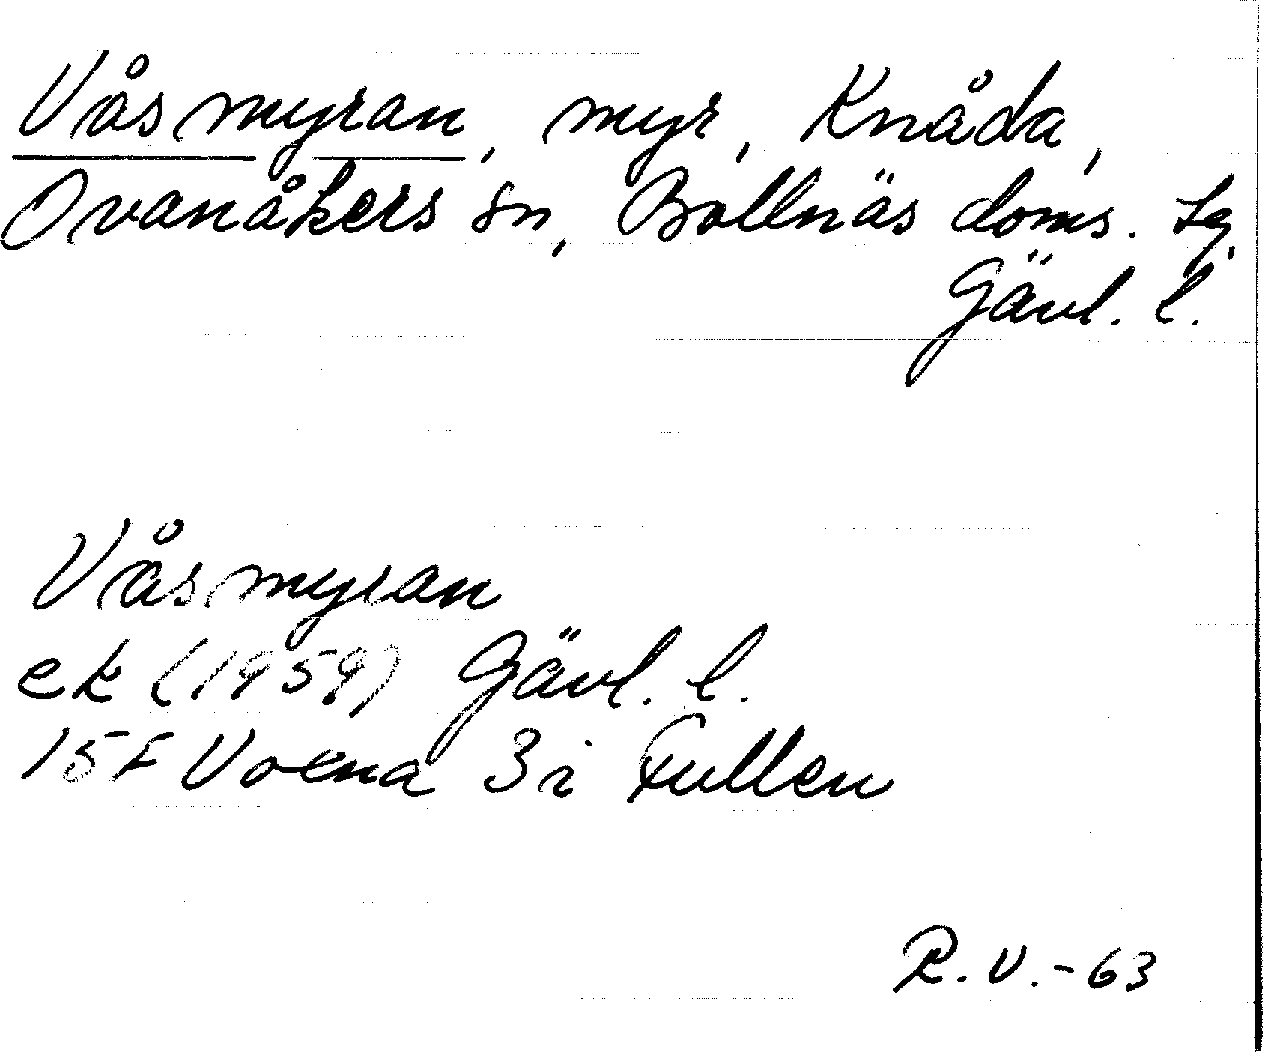 Våsmyran, myr, Knåda,
Ovanåkers sn, Bollnäs doms. tg,
Gävl. l.
Våsmyran
ek (1959) Gävl. l.
15F Voxna 3i Fullen
R.V.-63